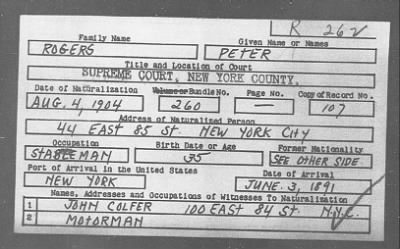 R 262
Family Name Given Name or Names
ROGERS PETER
Title and Location of Court
SUPREME COURT, NEW YORK COUNTY.
Date of Naturalization Volume or Bundle No. Page No. Copy of Record No.
AUG. 4, 1904 260 — 107
Address of Naturalized Person
44 EAST 85 St. NEW YORK CITY
Occupation Birth Date or Age Former Nationality
STABLEMAN 35 SEE OTHER SIDE
Port of Arrival in the United States Date of Arrival
NEW YORK JUNE. 3, 1891
Names, Addresses and Occupations of Witnesses To Naturalization
1 JOHN COLFER 100 EAST 84 St. N.Y.C.
2 MOTORMAN